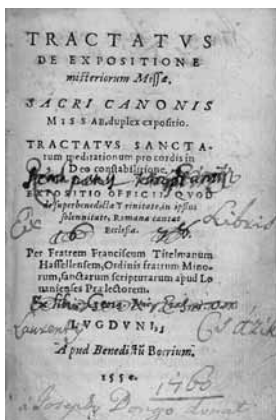 TRACTATVS
DE EXPOSITIONE
misteriorum Missæ.
SACRI CANONIS
MISSAE, duplex expositio.
TRACTATVS SANCTA-
rum meditationum pro cordis in
Deo constabilitione.
EXPOSITIO OFFICII, QVOD
de superbenedicta Trinitate, in ipsius
solennitate, Romana cantat
Ecclesia.
Ex Libris
Per Fratrem Franciscum Titelmanum
Hassellensem, Ordinis fratrum Mino-
rum, sanctarum scripturarum apud Lo-
uanienses Prælectorem.
LVGDVNI,
Apud Benedictū Bocrium.
1550.
1760
Josephi